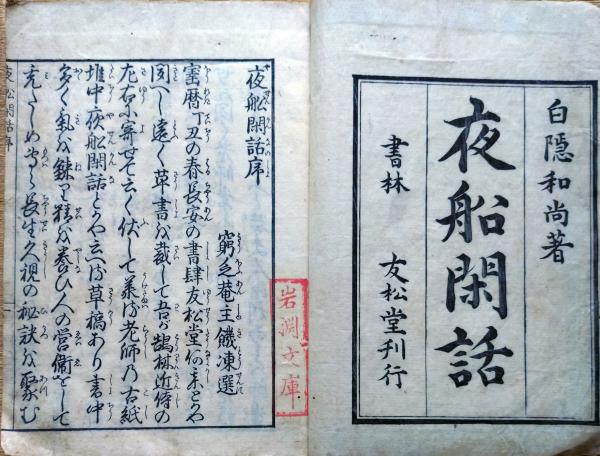 白隠和尚著
夜船閑話
書林　友松堂刊行
夜船閑話序
窮乏菴主饑凍選
宝暦丁丑の春長安の書肆友松堂何某とかや
閲へし遠く草書を裁して吾が鵠林近侍の
左右に寄せて云く伏して承る老師乃古紙
堆中夜船閑話とかや云へる草稿あり書中
多く気を錬り精を養ひ人の営衛をして
充たしめ専ら長生久視の秘訣を聚む
岩渕文庫
夜船閑話序